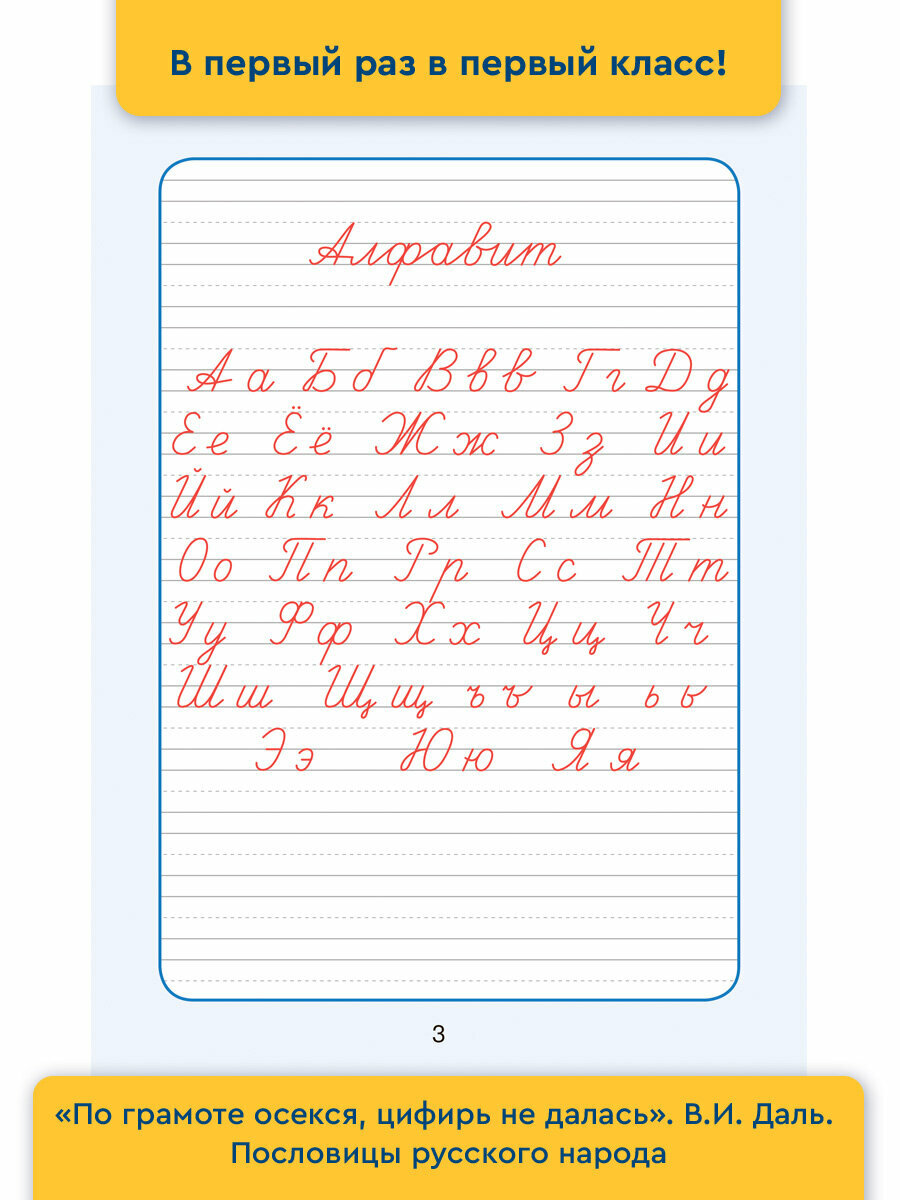 В первый раз в первый класс!
Алфавит
А а Б б В в в Г г Д д
Е е Ё ё Ж ж З з И и
Й й К к Л л М м Н н
О о П п Р р С с Т т
У у Ф ф Х х Ц ц Ч ч
Ш ш Щ щ ъ ъ ы ь ь
Э э Ю ю Я я
3
«По грамоте осекся, цифирь не далась». В.И. Даль.
Пословицы русского народа